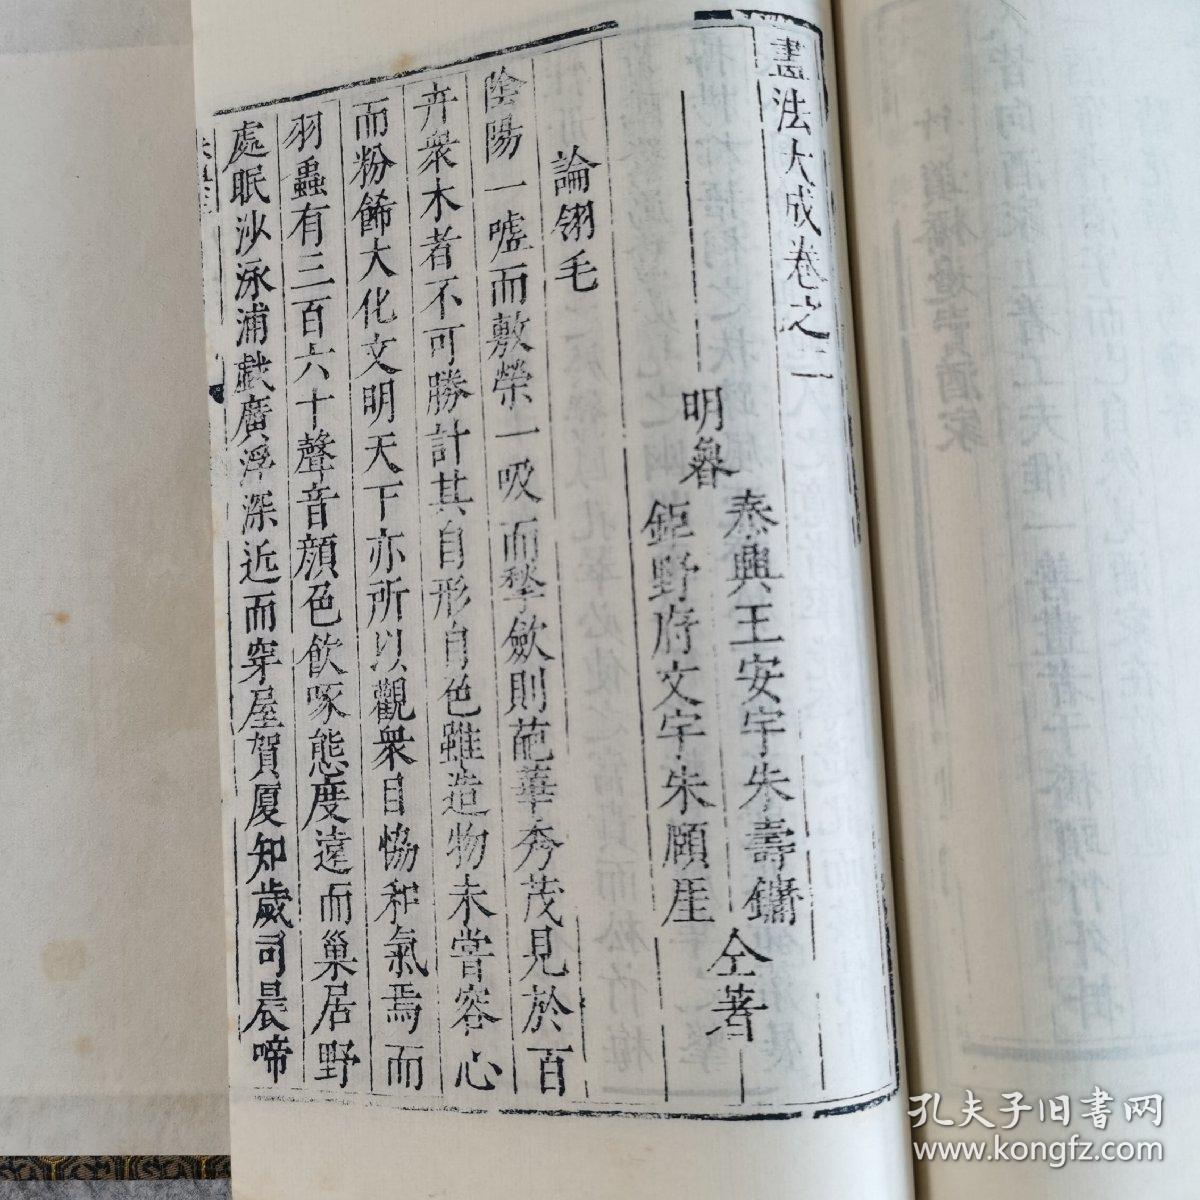 畫法大成卷之二
明魯
泰興王安宇朱壽鏞
鉅野府文宇朱頤厓
仝著
論翎毛
陰陽一噓而敷榮一吸而揫斂則葩華秀茂見於百
卉衆木者不可勝計其自形自色雖造物未嘗容心
而粉餙大化文明天下亦所以觀衆目恊和氣焉而
羽蟲有三百六十聲音顔色飲啄態度遠而巢居野
處眠沙泳浦戲廣浮深近而穿屋賀厦知歲司晨啼
孔夫子旧书网
www.kongfz.com